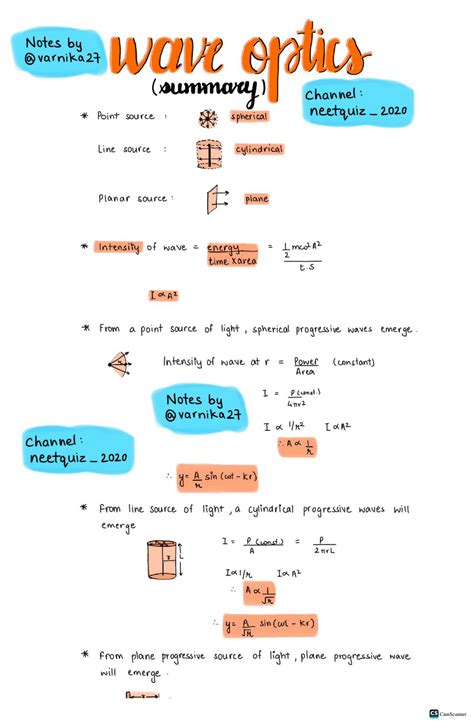 Notes by
@varnika27
wave optics
(summary)
Channel:
neetquiz_2020
* Point source : spherical
Line source : cylindrical
Planar source : plane
* Intensity of wave = energy / time x area = 1/2 mω²A² / t.S
I ∝ A²
* From a point source of light, spherical progressive waves emerge.
Intensity of wave at r = Power / Area (constant)
Notes by
@varnika27
I = P(const.) / 4πr²
I ∝ 1/r² I ∝ A²
∴ A ∝ 1/r
Channel:
neetquiz_2020
∴ y = A/r sin (ωt - kr)
* From line source of light, a cylindrical progressive waves will
emerge
r
L
I = P (const.) / A = P / 2πrL
I ∝ 1/r I ∝ A²
∴ A ∝ 1/√r
∴ y = A/√r sin (ωt - kr)
* From plane progressive source of light, plane progressive wave
will emerge.
CS CamScanner